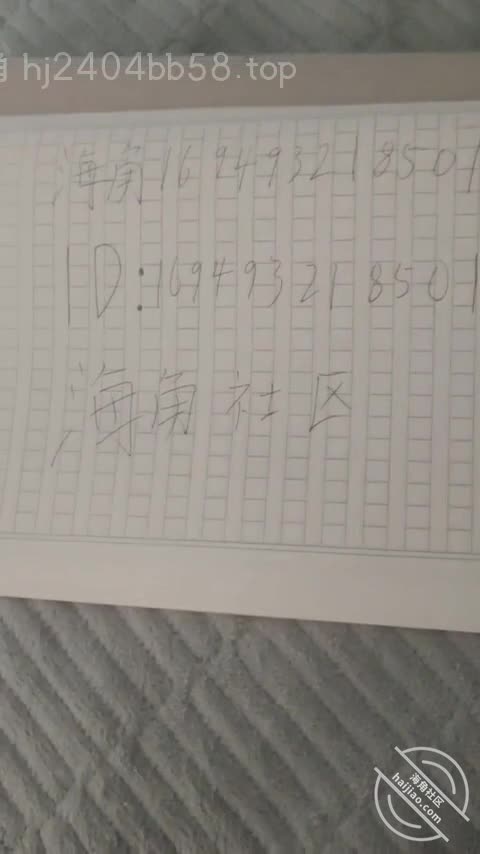 角 hj2404bb58.top
海角169493218501
ID:169493218501
海角社区
海角社区
haijiao.com